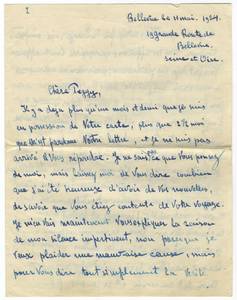 I
Bellevue le 11 mai. 1954.
19 Grande Route de
Bellevue.
Seine et Oise.
Chère Peggy,
Il y a déjà plus qu'un mois et demi que je suis
en possession de Votre carte, plus que 2½ mois
que Votre lettre, et je ne suis pas
arrivé à Vous répondre. Je ne sais pas ce que Vous pensez
de moi, mais laissez moi de Vous dire combien
que j'ai été heureuse d'avoir de Vos nouvelles,
de savoir que Vous étiez contents de Votre voyage.
Je viens maintenant Vous expliquer la raison
de mon silence impertinent, non parce que je
veux plaider une mauvaise cause, mais
pour Vous dire tout simplement la vérité.